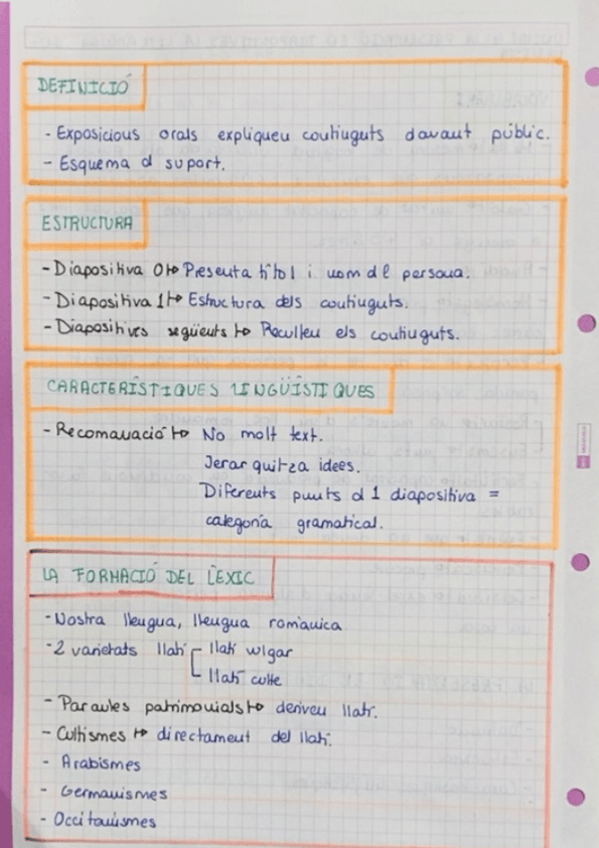 DEFINICIÓ
- Exposicions orals expliquen continguts davant públic.
- Esquema d suport.
ESTRUCTURA
- Diapositiva 0 ↦ Presenta títol i nom d l persona.
- Diapositiva 1 ↦ Estructura dels continguts.
- Diapositives següents ↦ Recullen els continguts.
CARACTERÍSTIQUES LINGÜÍSTIQUES
- Recomanació ↦ No molt text.
Jerarquitza idees.
Diferents punts d 1 diapositiva =
categoria gramatical.
LA FORMACIÓ DEL LÈXIC
- Nostra llengua, llengua romànica
- 2 varietats llatí llatí vulgar
llatí culte
- Paraules patrimonials ↦ deriven llatí.
- Cultismes ↦ directament del llatí.
- Arabismes
- Germanismes
- Occitanismes